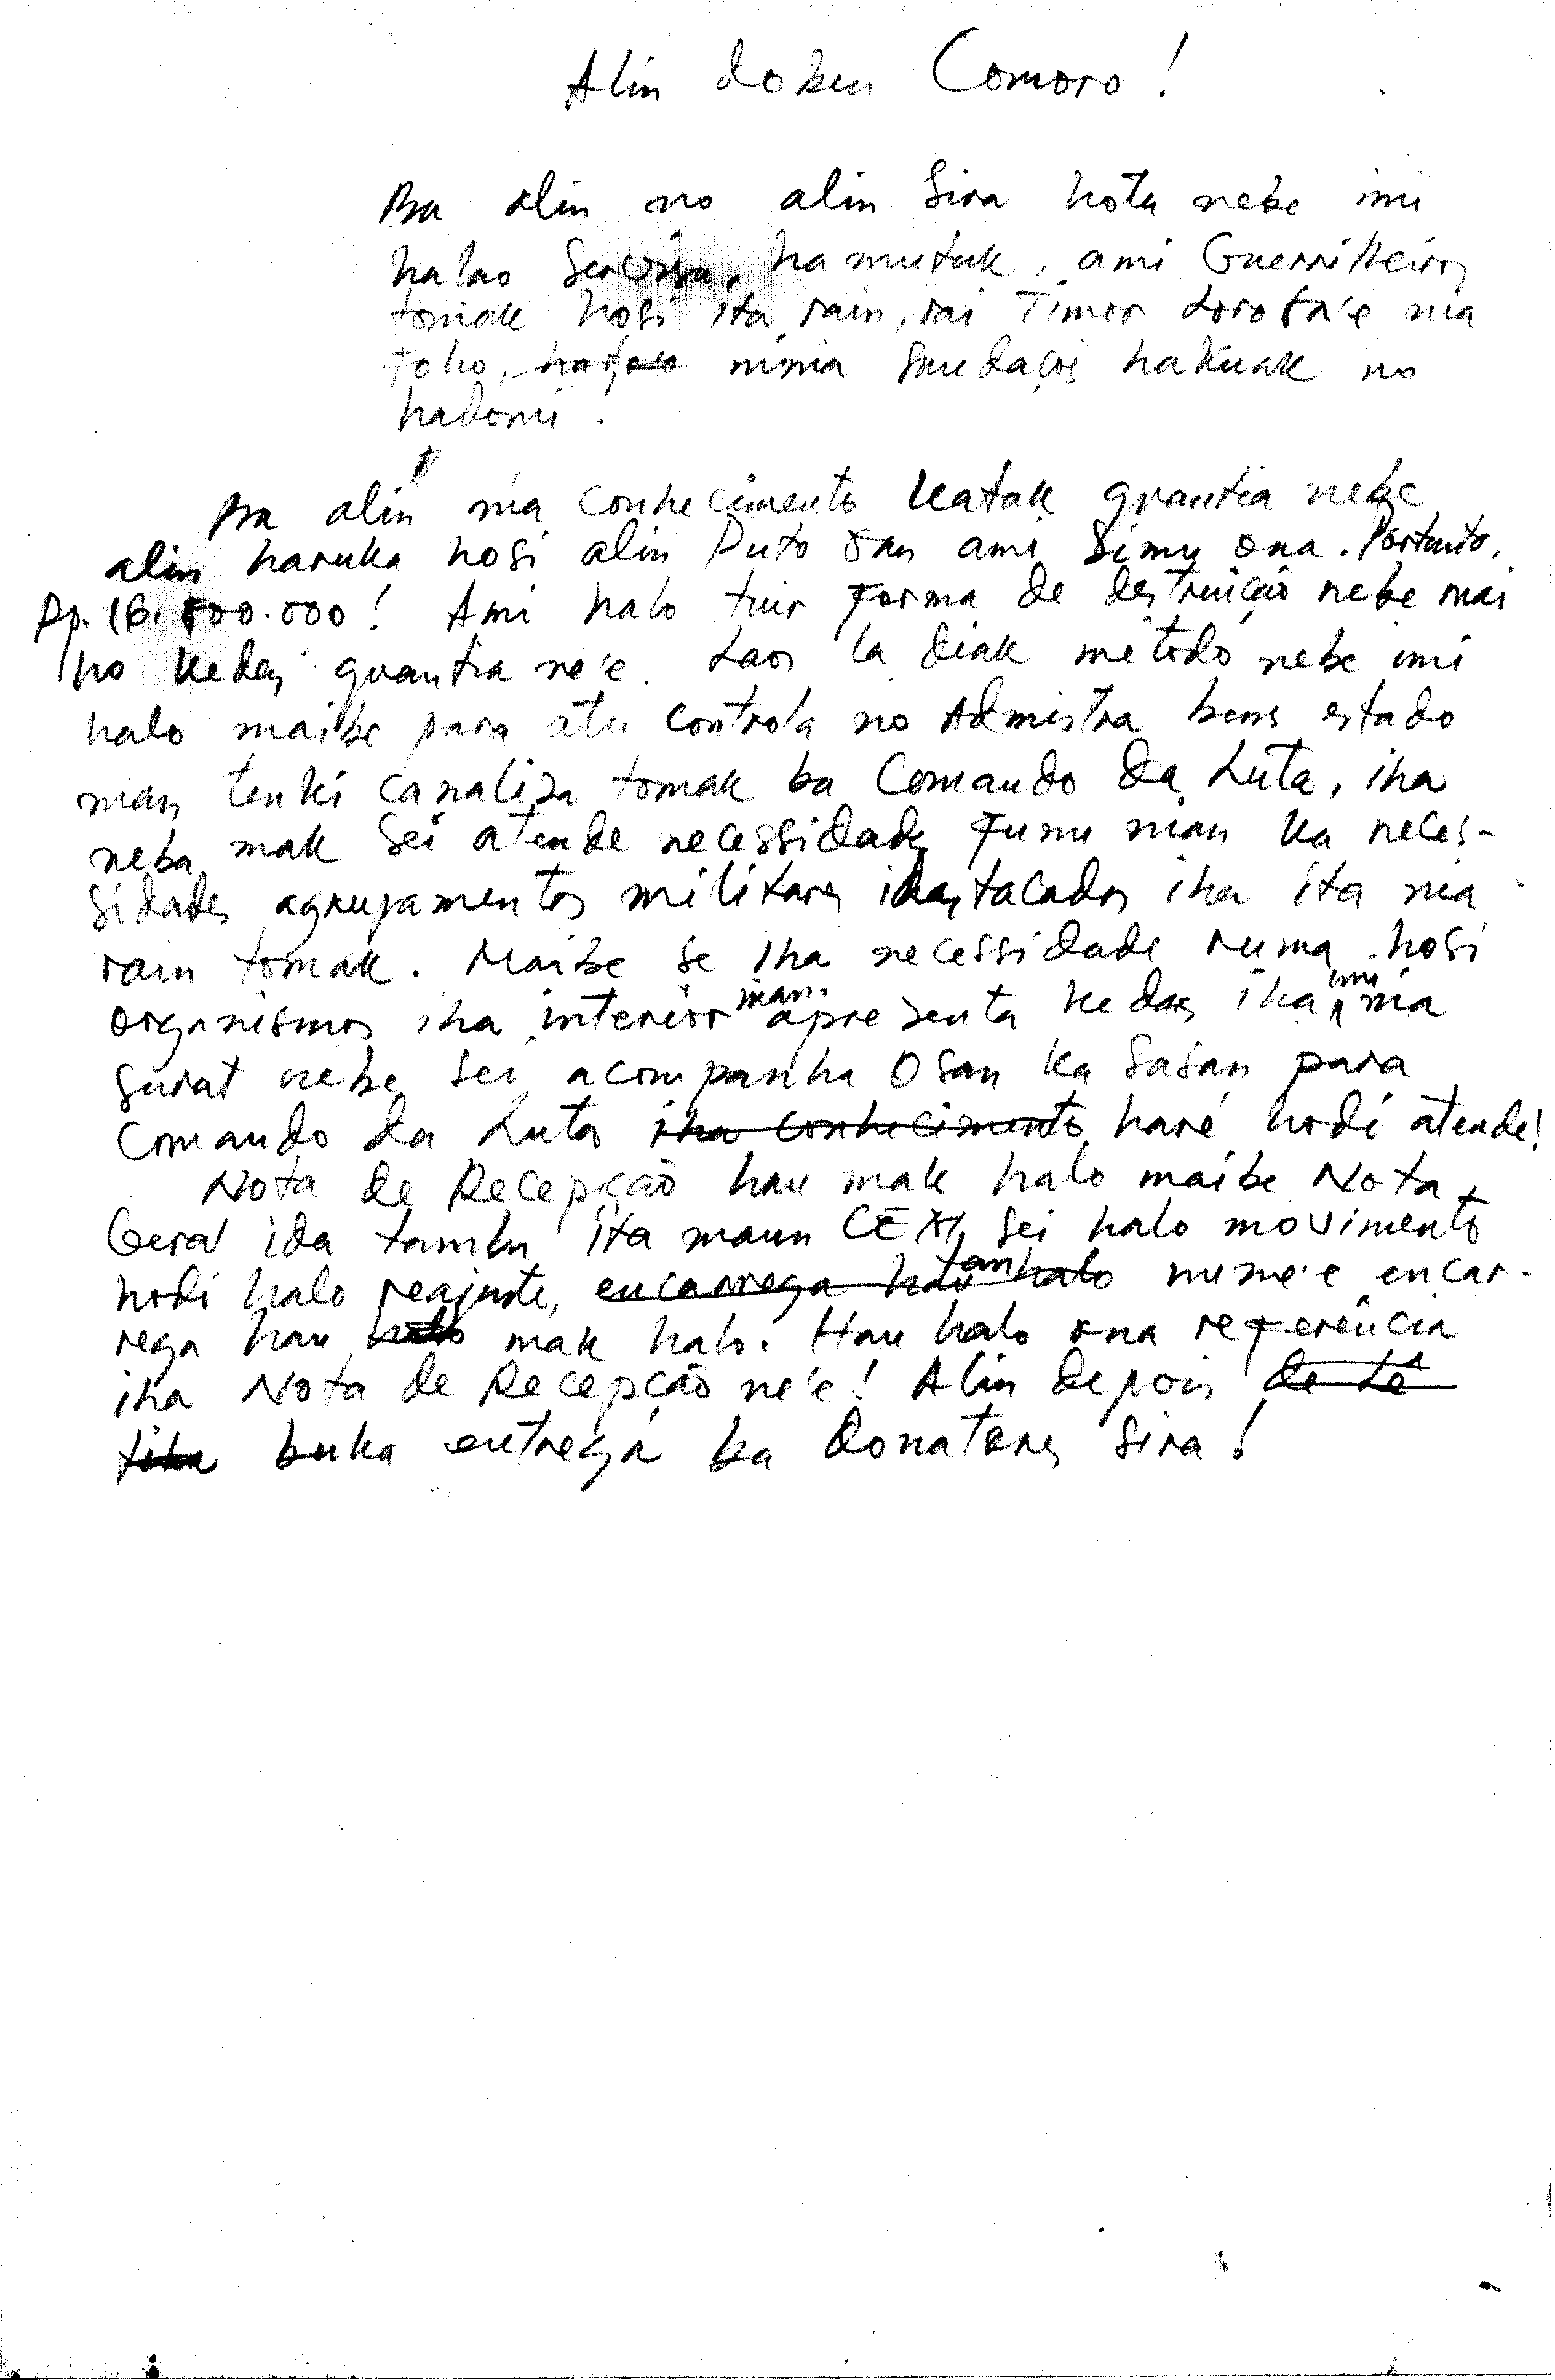 Alin doben Comoro!
Ba alin no alin sira hotu nebe imi
halao servisu, hamutuk, ami Guerrilheiros
tomak hosi ita rain, rai Timor Lorosa'e nia
foho, ninia saudações hakuak no
hadomi!
Ba alin nia conhecimento katak quantia nebe
alin haruka hosi alin Puto oan ami simu ona. Portanto,
Rp. 16.500.000! Ami halo tuir forma de destruição nebe mai
ho kedas quantia ne'e. Laos la diak método nebe imi
halo maibe para atu controla no Admistra bens estado
nian tenki canaliza tomak ba Comando da Luta, iha
neba mak sei atende necessidades funu nian ka neces-
sidades agrupamentos militares destacados iha ita nia
rain tomak. Maibe se iha necessidade ruma hosi
organismos iha interior nian apresenta kedas iha imi nia
surat nebe sei acompanha osan ka sasan para
Comando da Luta iha conhecimento haré hodi atende!
Nota de Recepção hau mak halo maibe Nota
Geral ida tamba ita maun CEXI, sei halo movimento
hodi halo reajuste, encarrega hau halo nune'e encar-
rega hau halo mak halo. Hau halo ona referência
iha Nota de Recepção ne'e! Alin depois de Lê
tiha buka entrega ba Donatores sira!